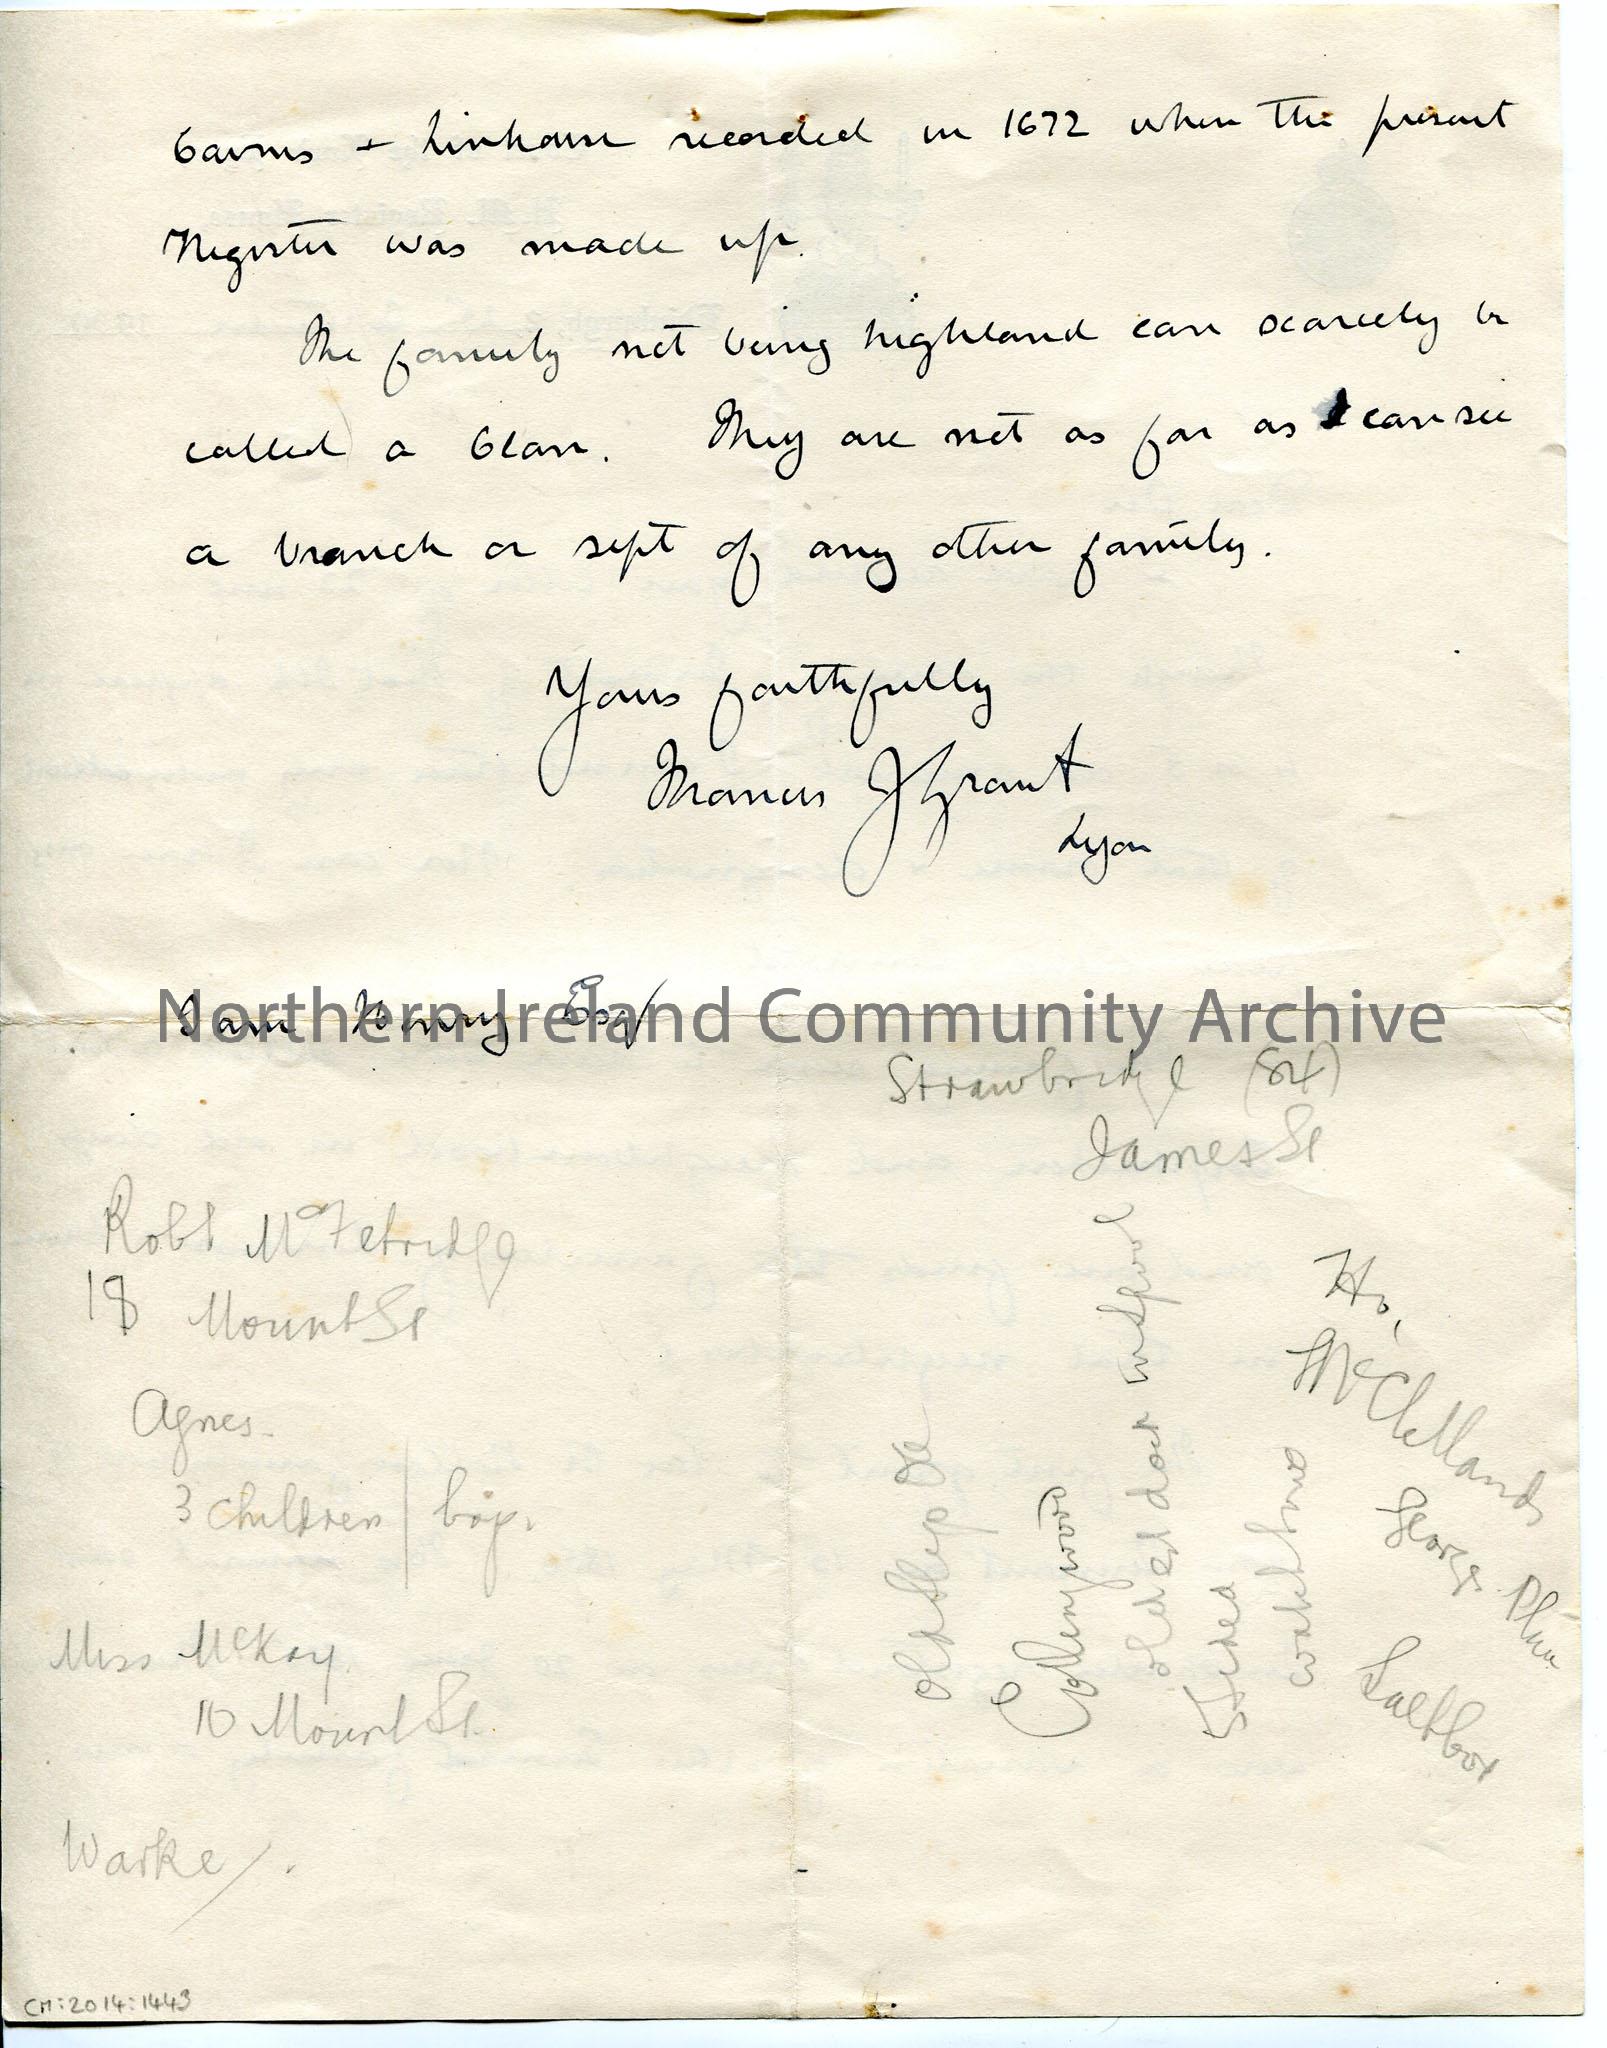 Cairns + Linhouse recorded in 1672 when the present
Register was made up.
The family not being highland can scarcely be
called a Clan. They are not as far as I can see
a branch or sept of any other family.
Yours faithfully
Francis J Grant
Lyon
Sam Henry Esq
Northern Ireland Community Archive
Strawbridge (84)
James St
Robt McFetridge
18 Mount St
Agnes.
3 children / boys.
Miss McKay.
10 Mount St.
Warke/.
old
Collingwood
oldest
watch
Ho,
McClellands
George
Saltbox
CM:2014:1443